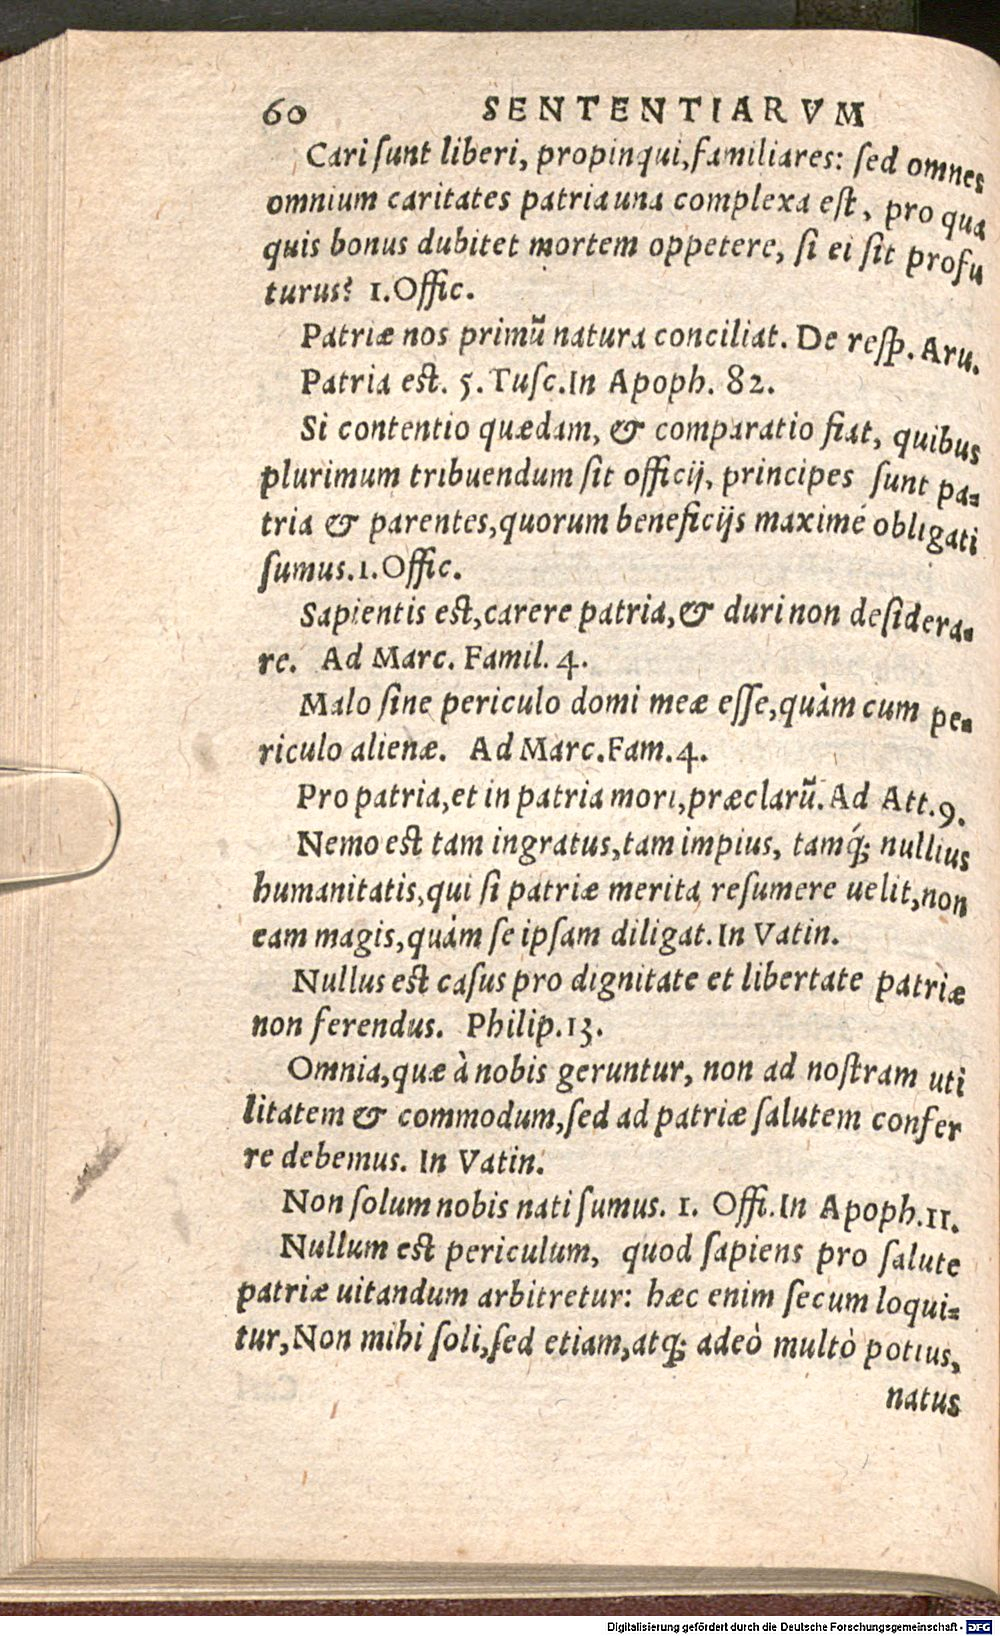 60 SENTENTIARVM
Cari ſunt liberi, propinqui, familiares: ſed omnes
omnium caritates patria una complexa eſt, pro qua
quis bonus dubitet mortem oppetere, ſi ei ſit profu
turus? 1. Offic.
Patriæ nos primũ natura conciliat. De reſp. Aru.
Patria est. 5. Tuſc. In Apoph. 82.
Si contentio quædam, & comparatio fiat, quibus
plurimum tribuendum ſit officij, principes ſunt pa=
tria & parentes, quorum beneficijs maximé obligati
ſumus. 1. Offic.
Sapientis eſt, carere patria, & duri non deſidera=
re. Ad Marc. Famil. 4.
Malo ſine periculo domi meæ eſſe, quàm cum pe=
riculo alienæ. Ad Marc. Fam. 4.
Pro patria, et in patria mori, præclarũ. Ad Att. 9.
Nemo eſt tam ingratus, tam impius, tamq́; nullius
humanitatis, qui ſi patriæ merita reſumere uelit, non
eam magis, quàm ſe ipſam diligat. In Vatin.
Nullus eſt caſus pro dignitate et libertate patriæ
non ferendus. Philip. 13.
Omnia, quæ à nobis geruntur, non ad noſtram uti
litatem & commodum, ſed ad patriæ ſalutem confer
re debemus. In Vatin.
Non ſolum nobis nati ſumus. 1. Offi. In Apoph. 11.
Nullum eſt periculum, quod ſapiens pro ſalute
patriæ uitandum arbitretur: hæc enim ſecum loqui=
tur, Non mihi ſoli, ſed etiam, atq; adeò multò potius,
natus
Digitalisierung gefördert durch die Deutsche Forschungsgemeinschaft - DFG